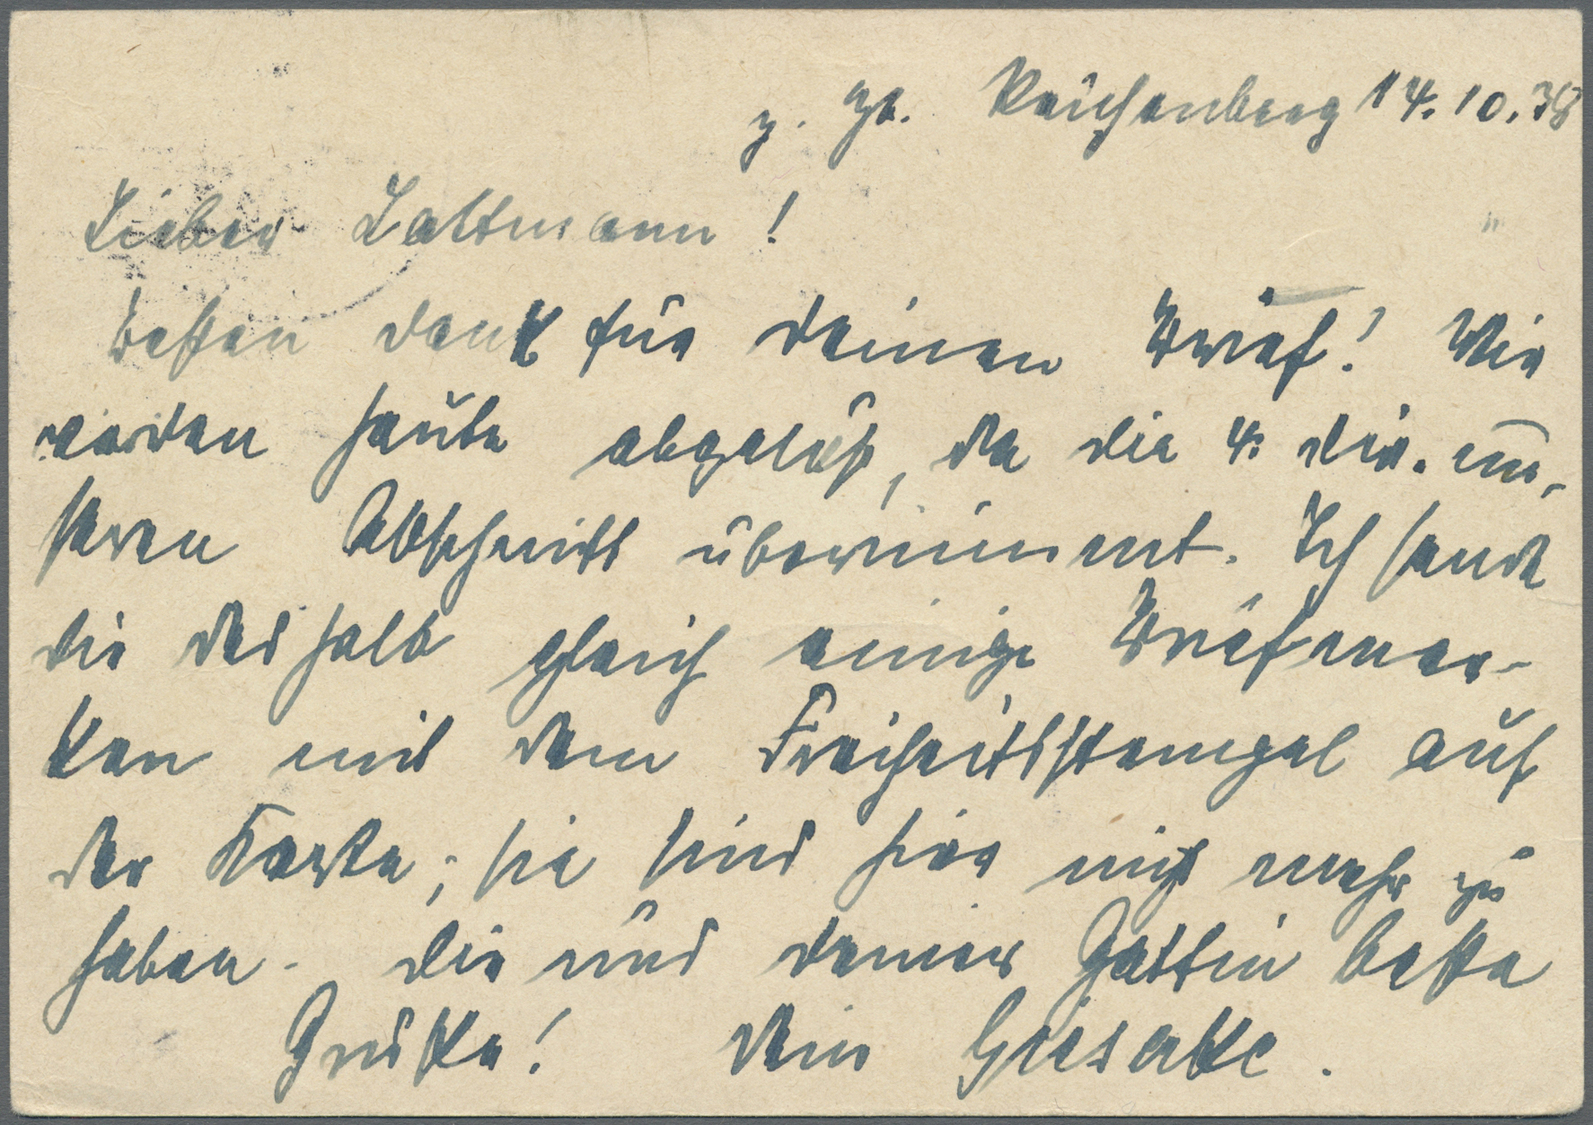 z. Zt. Reichenberg 14.10.38
Lieber Lattmann!
Besten Dank für Deinen Brief! Wir
werden heute abgelöst, da die 4. Div. un-
seren Abschnitt übernimmt. Ich sende
Dir deshalb gleich einige Briefmar-
ken mit dem Freiheitsstempel auf
der Karte; sie sind hier nicht mehr zu
haben. Dir und Deiner Gattin beste
Grüße! Dein